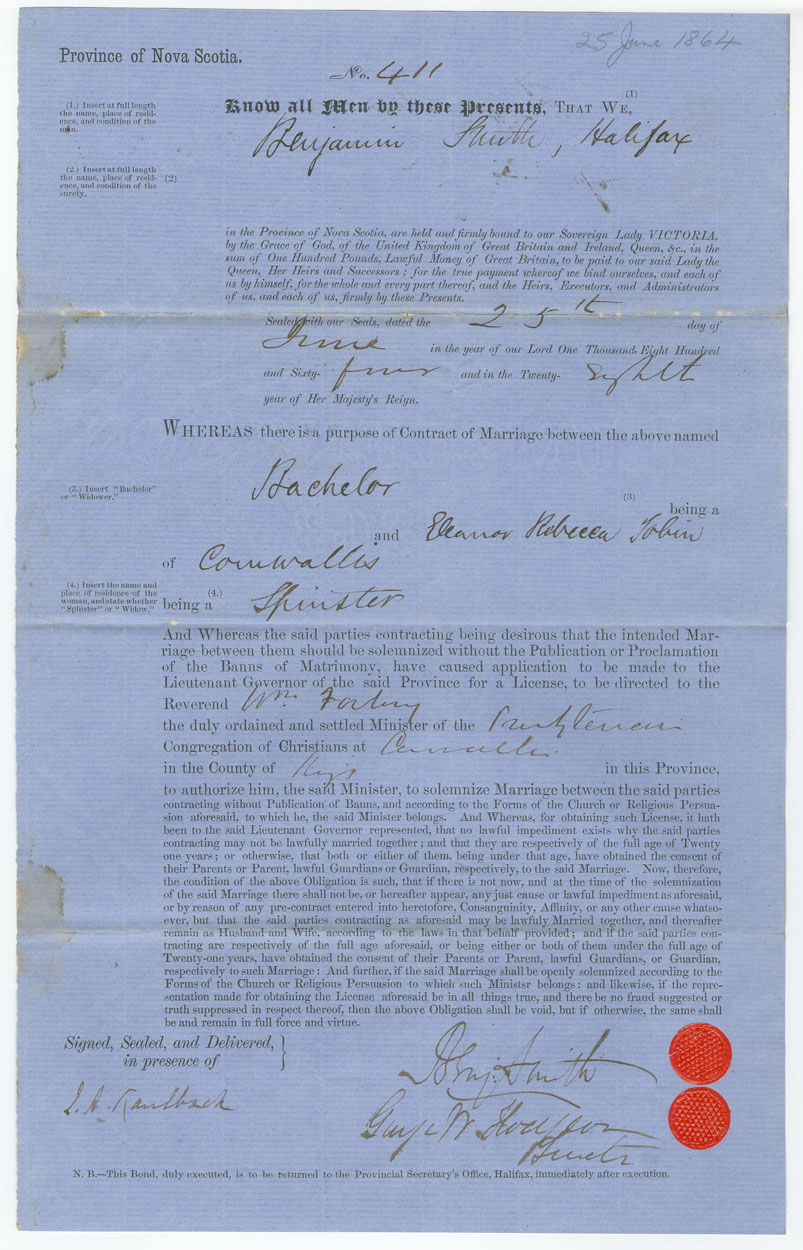 25 June 1864
Province of Nova Scotia.
No. 411
(1)
(1.) Insert at full length
the name, place of resid-
ence, and condition of the
man.
Know all Men by these Presents, THAT WE,
Benjamin Smith, Halifax
(2.) Insert at full length
the name, place of resid-
ence, and condition of the
surety.
(2)
in the Province of Nova Scotia, are held and firmly bound to our Sovereign Lady VICTORIA,
by the Grace of God, of the United Kingdom of Great Britain and Ireland, Queen, &c., in the
sum of One Hundred Pounds, Lawful Money of Great Britain, to be paid to our said Lady the
Queen, Her Heirs and Successors; for the true payment whereof we bind ourselves, and each of
us by himself, for the whole and every part thereof, and the Heirs, Executors, and Administrators
of us, and each of us, firmly by these Presents.
Sealed with our Seals, dated the 25th day of
June in the year of our Lord One Thousand Eight Hundred
and Sixty- four and in the Twenty- Eight
year of Her Majesty's Reign.
WHEREAS there is a purpose of Contract of Marriage between the above named
(3.) Insert "Bachelor"
or "Widower."
Bachelor
(3)
being a
and Eleanor Rebecca Tobin
of Cornwallis
(4.) Insert the name and
place of residence of the
woman, and state whether
"Spinster" or "Widow."
(4.)
being a Spinster
And Whereas the said parties contracting being desirous that the intended Mar-
riage between them should be solemnized without the Publication or Proclamation
of the Banns of Matrimony, have caused application to be made to the
Lieutenant Governor of the said Province for a License, to be directed to the
Reverend Wm
the duly ordained and settled Minister of the Presbyterian
Congregation of Christians at Cornwallis
in the County of Kings in this Province,
to authorize him, the said Minister, to solemnize Marriage between the said parties
contracting without Publication of Banns, and according to the Forms of the Church or Religious Persua-
sion aforesaid, to which he, the said Minister belongs. And Whereas, for obtaining such License, it hath
been to the said Lieutenant Governor represented, that no lawful impediment exists why the said parties
contracting may not be lawfully married together; and that they are respectively of the full age of Twenty
one years; or otherwise, that both or either of them, being under that age, have obtained the consent of
their Parents or Parent, lawful Guardians or Guardian, respectively, to the said Marriage. Now, therefore,
the condition of the above Obligation is such, that if there is not now, and at the time of the solemnization
of the said Marriage there shall not be, or hereafter appear, any just cause or lawful impediment as aforesaid,
or by reason of any pre-contract entered into heretofore, Consanguinity, Affinity, or any other cause whatso-
ever, but that the said parties contracting as aforesaid may be lawfuly Married together, and thereafter
remain as Husband and Wife, according to the laws in that behalf provided; and if the said parties con-
tracting are respectively of the full age aforesaid, or being either or both of them under the full age of
Twenty-one years, have obtained the consent of their Parents or Parent, lawful Guardians, or Guardian,
respectively to such Marriage: And further, if the said Marriage shall be openly solemnized according to the
Forms of the Church or Religious Persuasion to which such Ministsr belongs: and likewise, if the repre-
sentation made for obtaining the License aforesaid be in all things true, and there be no fraud suggested or
truth suppressed in respect thereof, then the above Obligation shall be void, but if otherwise, the same shall
be and remain in full force and virtue.
Signed, Sealed, and Delivered,
in presence of
Benj. Smith
Kaulback
W
N. B.—This Bond, duly executed, is to be returned to the Provincial Secretary's Office, Halifax, immediately after execution.